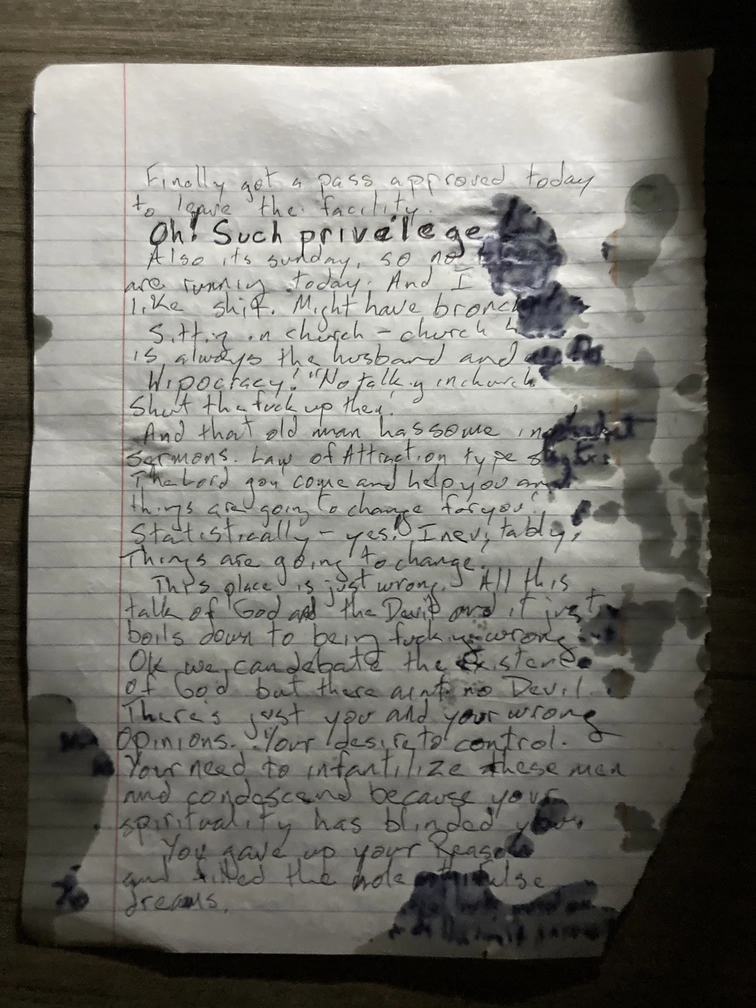 Finally got a pass approved today
to leave the facility.
Oh! Such privelege
Also its sunday, so no
are running today. And I
like shit. Might have bronch
Sitting in church - church
is always the husband and
Hipocracy! "No talking in church"
Shut the fuck up then!
And that old man has some
Sermons. Law of Attraction type
The Lord gon' come and help you and
things are going to change for you!
Statistically - yes. Inevitably,
Things are going to change.
This place is just wrong. All this
talk of God and the Devil and it just
boils down to being fucking wrong.
Ok we can debate the existence
of God but there aint no Devil.
There's just you and your wrong
Opinions. Your desire to control.
Your need to infantilize these men
and condescend because your
spirituality has blinded you.
You gave up your Reason
and filled the hole
dreams.